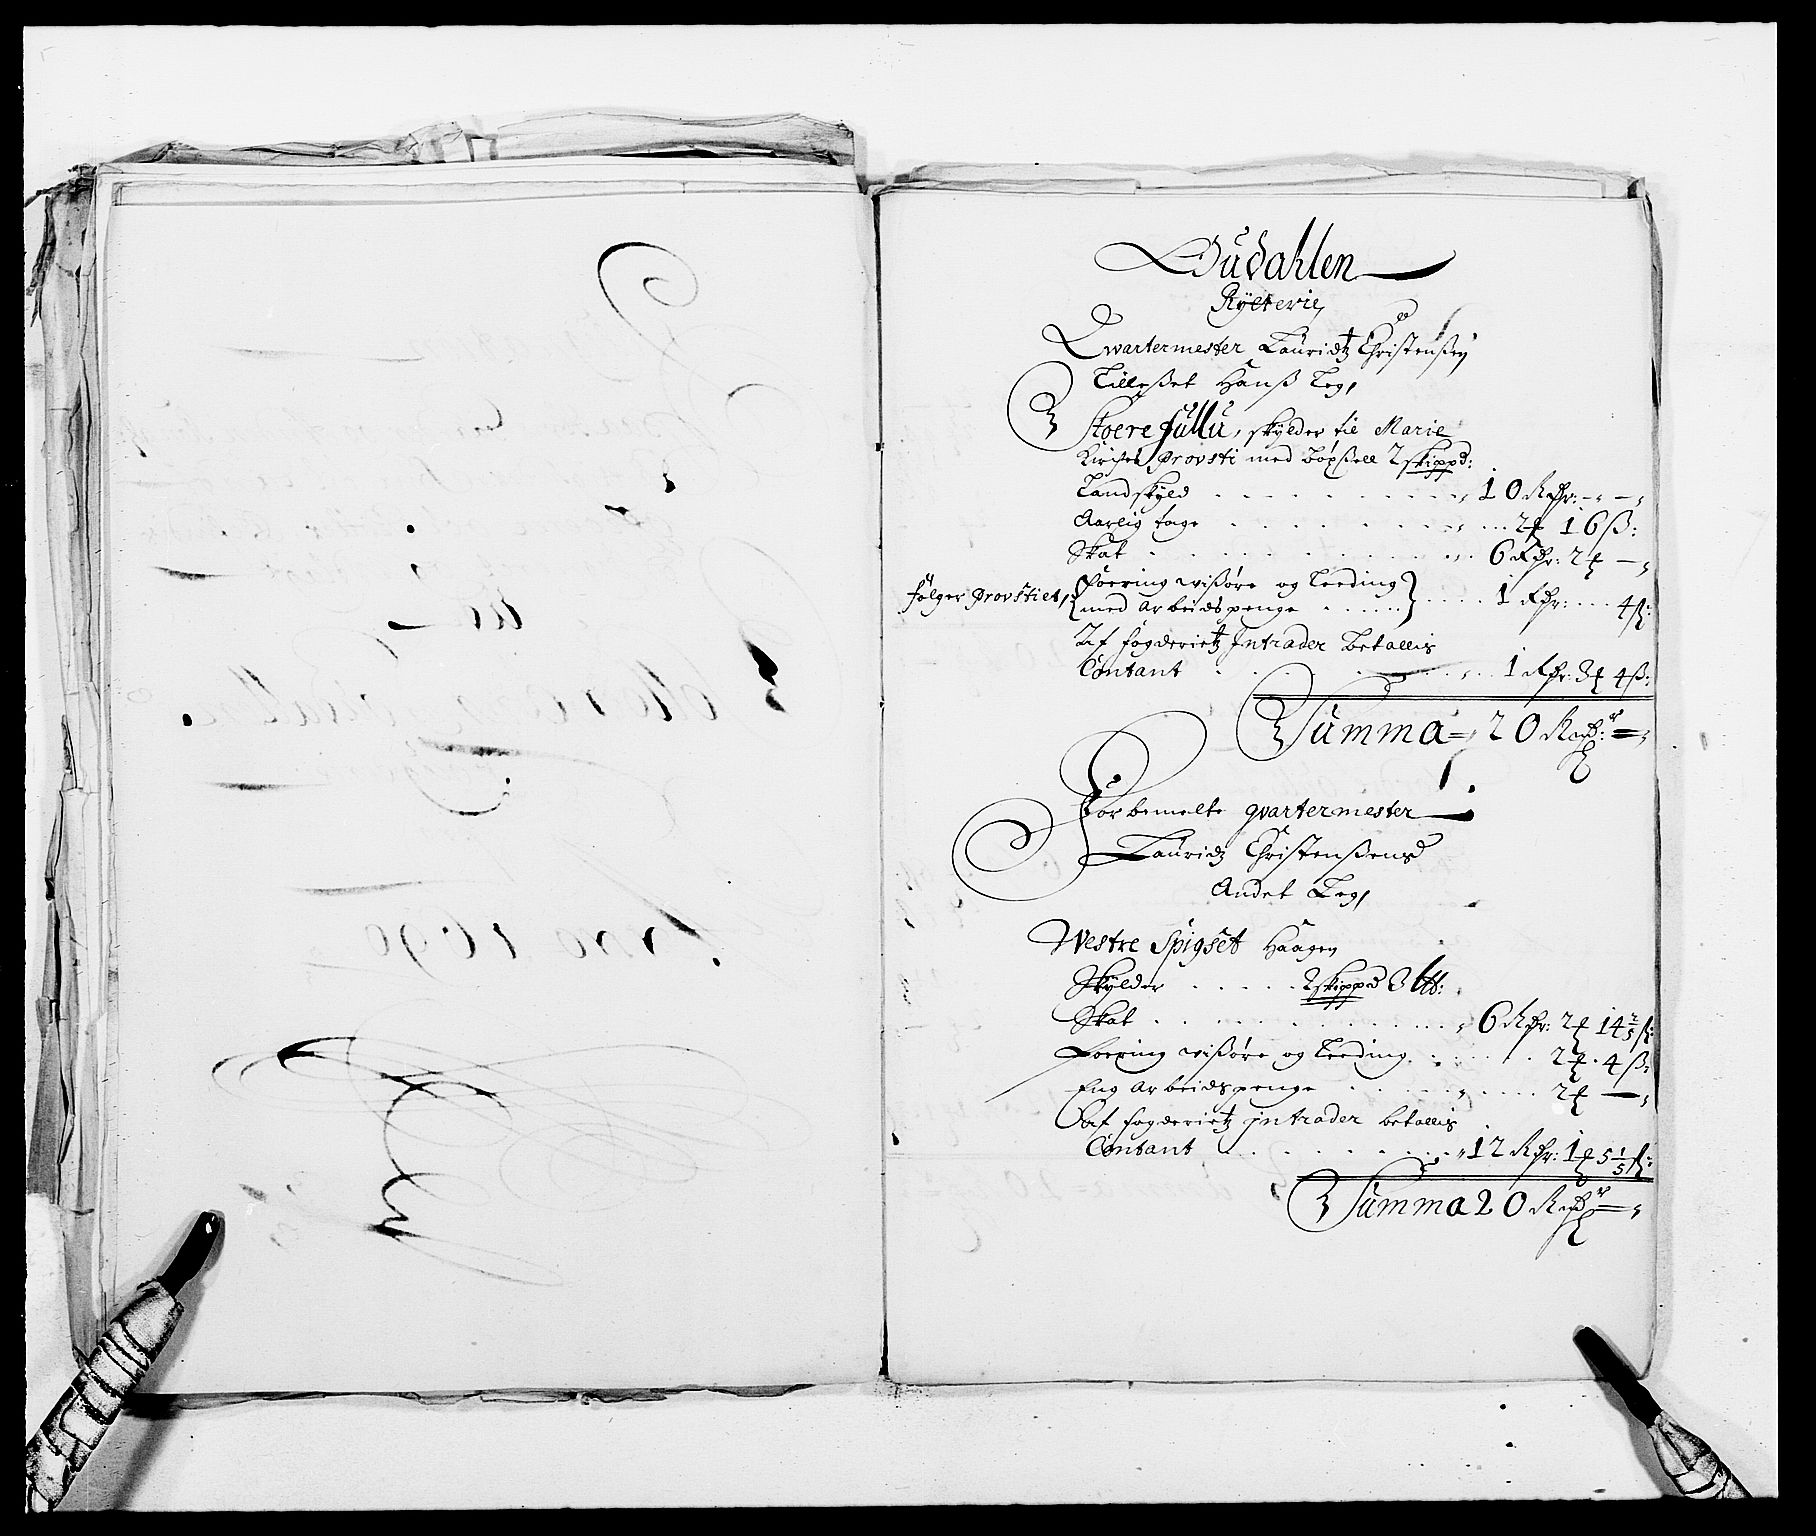 Gudahlen
Rÿtterie,
Qvartermester Lauridtz Christenßen
Tilleßet Hanß Leg,
Stoere fullu, skÿlder til Marie
Kirches Provsti med bøxßell 2 skippd:
Landskÿld . . . . 10 Rdr: - „ - „
Aarlig tage . . . . 2 ℔ 16 ß:
Skat . . . . 6 Rdr: 2 ℔ - „
følger Provstiet, foering wißøre og Leeding
med arbeidspenge . . . . 1 Rdr: . . . 4 ß:
Af fogderietz Intrader betallis
Contant . . . . 1 Rdr: 3 ℔ 4 ß:
Summa = 20 Rixdr = „
Forbemelte qvartermester
Lauridtz Christenßens
Andet Leg,
Westre Spigset Haagen
Skÿlder . . . . 2 skippd 3 ℔:
Skat . . . . 6 Rdr: 2 ℔ 14 2/5 ß:
Foering wißøre og Leeding . . . . 2 ℔ . 4 ß:
Eng arbeidspenge . . . . 2 ℔ - „
Aaf fogderietz intrader betallis
Contant . . . . 12 Rdr: 1 ℔ 5 1/5 ß:
Summa 20 Rixdr = „